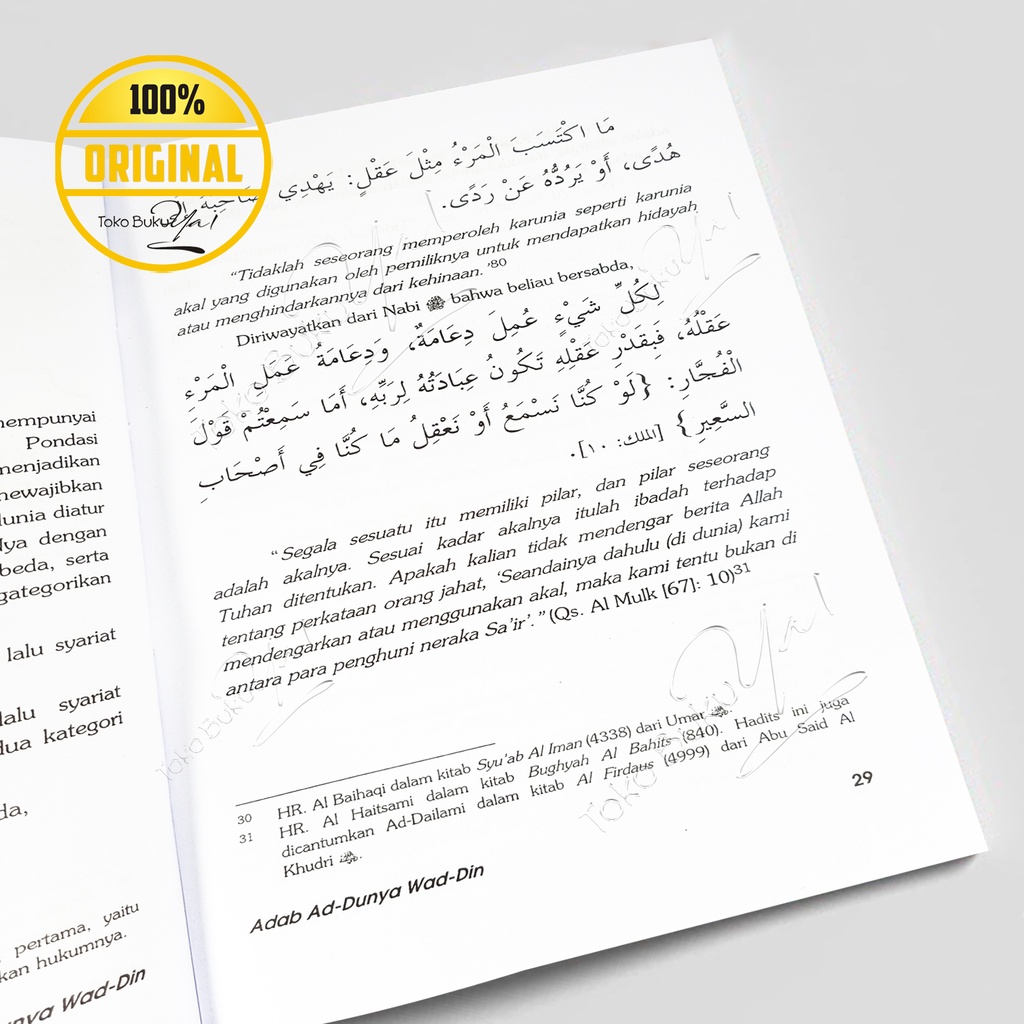 100%
ORIGINAL
Toko Buku Yai
مَا اكْتَسَبَ الْمَرْءُ مِثْلَ عَقْلٍ: يَهْدِي صَاحِبَهُ
هُدًى، أَوْ يَرُدُّهُ عَنْ رَدًى.
"Tidaklah seseorang memperoleh karunia seperti karunia
akal yang digunakan oleh pemiliknya untuk mendapatkan hidayah
atau menghindarkannya dari kehinaan.'80
Diriwayatkan dari Nabi ﷺ bahwa beliau bersabda,
لِكُلِّ شَيْءٍ عُمِلَ دِعَامَةٌ، وَدِعَامَةُ عَمَلِ الْمَرْءِ
عَقْلُهُ، فَبِقَدْرِ عَقْلِهِ تَكُونُ عِبَادَتُهُ لِرَبِّهِ، أَمَا سَمِعْتُمْ قَوْلَ
الْفُجَّارِ: {لَوْ كُنَّا نَسْمَعُ أَوْ نَعْقِلُ مَا كُنَّا فِي أَصْحَابِ
السَّعِيرِ} [الملك: ١٠].
"Segala sesuatu itu memiliki pilar, dan pilar seseorang
adalah akalnya. Sesuai kadar akalnya itulah ibadah terhadap
Tuhan ditentukan. Apakah kalian tidak mendengar berita Allah
tentang perkataan orang jahat, 'Seandainya dahulu (di dunia) kami
mendengarkan atau menggunakan akal, maka kami tentu bukan di
antara para penghuni neraka Sa'ir'." (Qs. Al Mulk [67]: 10)31
30 HR. Al Baihaqi dalam kitab Syu'ab Al Iman (4338) dari Umar
31 HR. Al Haitsami dalam kitab Bughyah Al Bahits (840). Hadits ini juga
dicantumkan Ad-Dailami dalam kitab Al Firdaus (4999) dari Abu Said Al
Khudri
29
Adab Ad-Dunya Wad-Din
mempunyai
Pondasi
menjadikan
newajibkan
unia diatur
Nya dengan
beda, serta
gategorikan
lalu syariat
lalu syariat
dua kategori
da,
pertama, yaitu
kan hukumnya.
unya Wad-Din